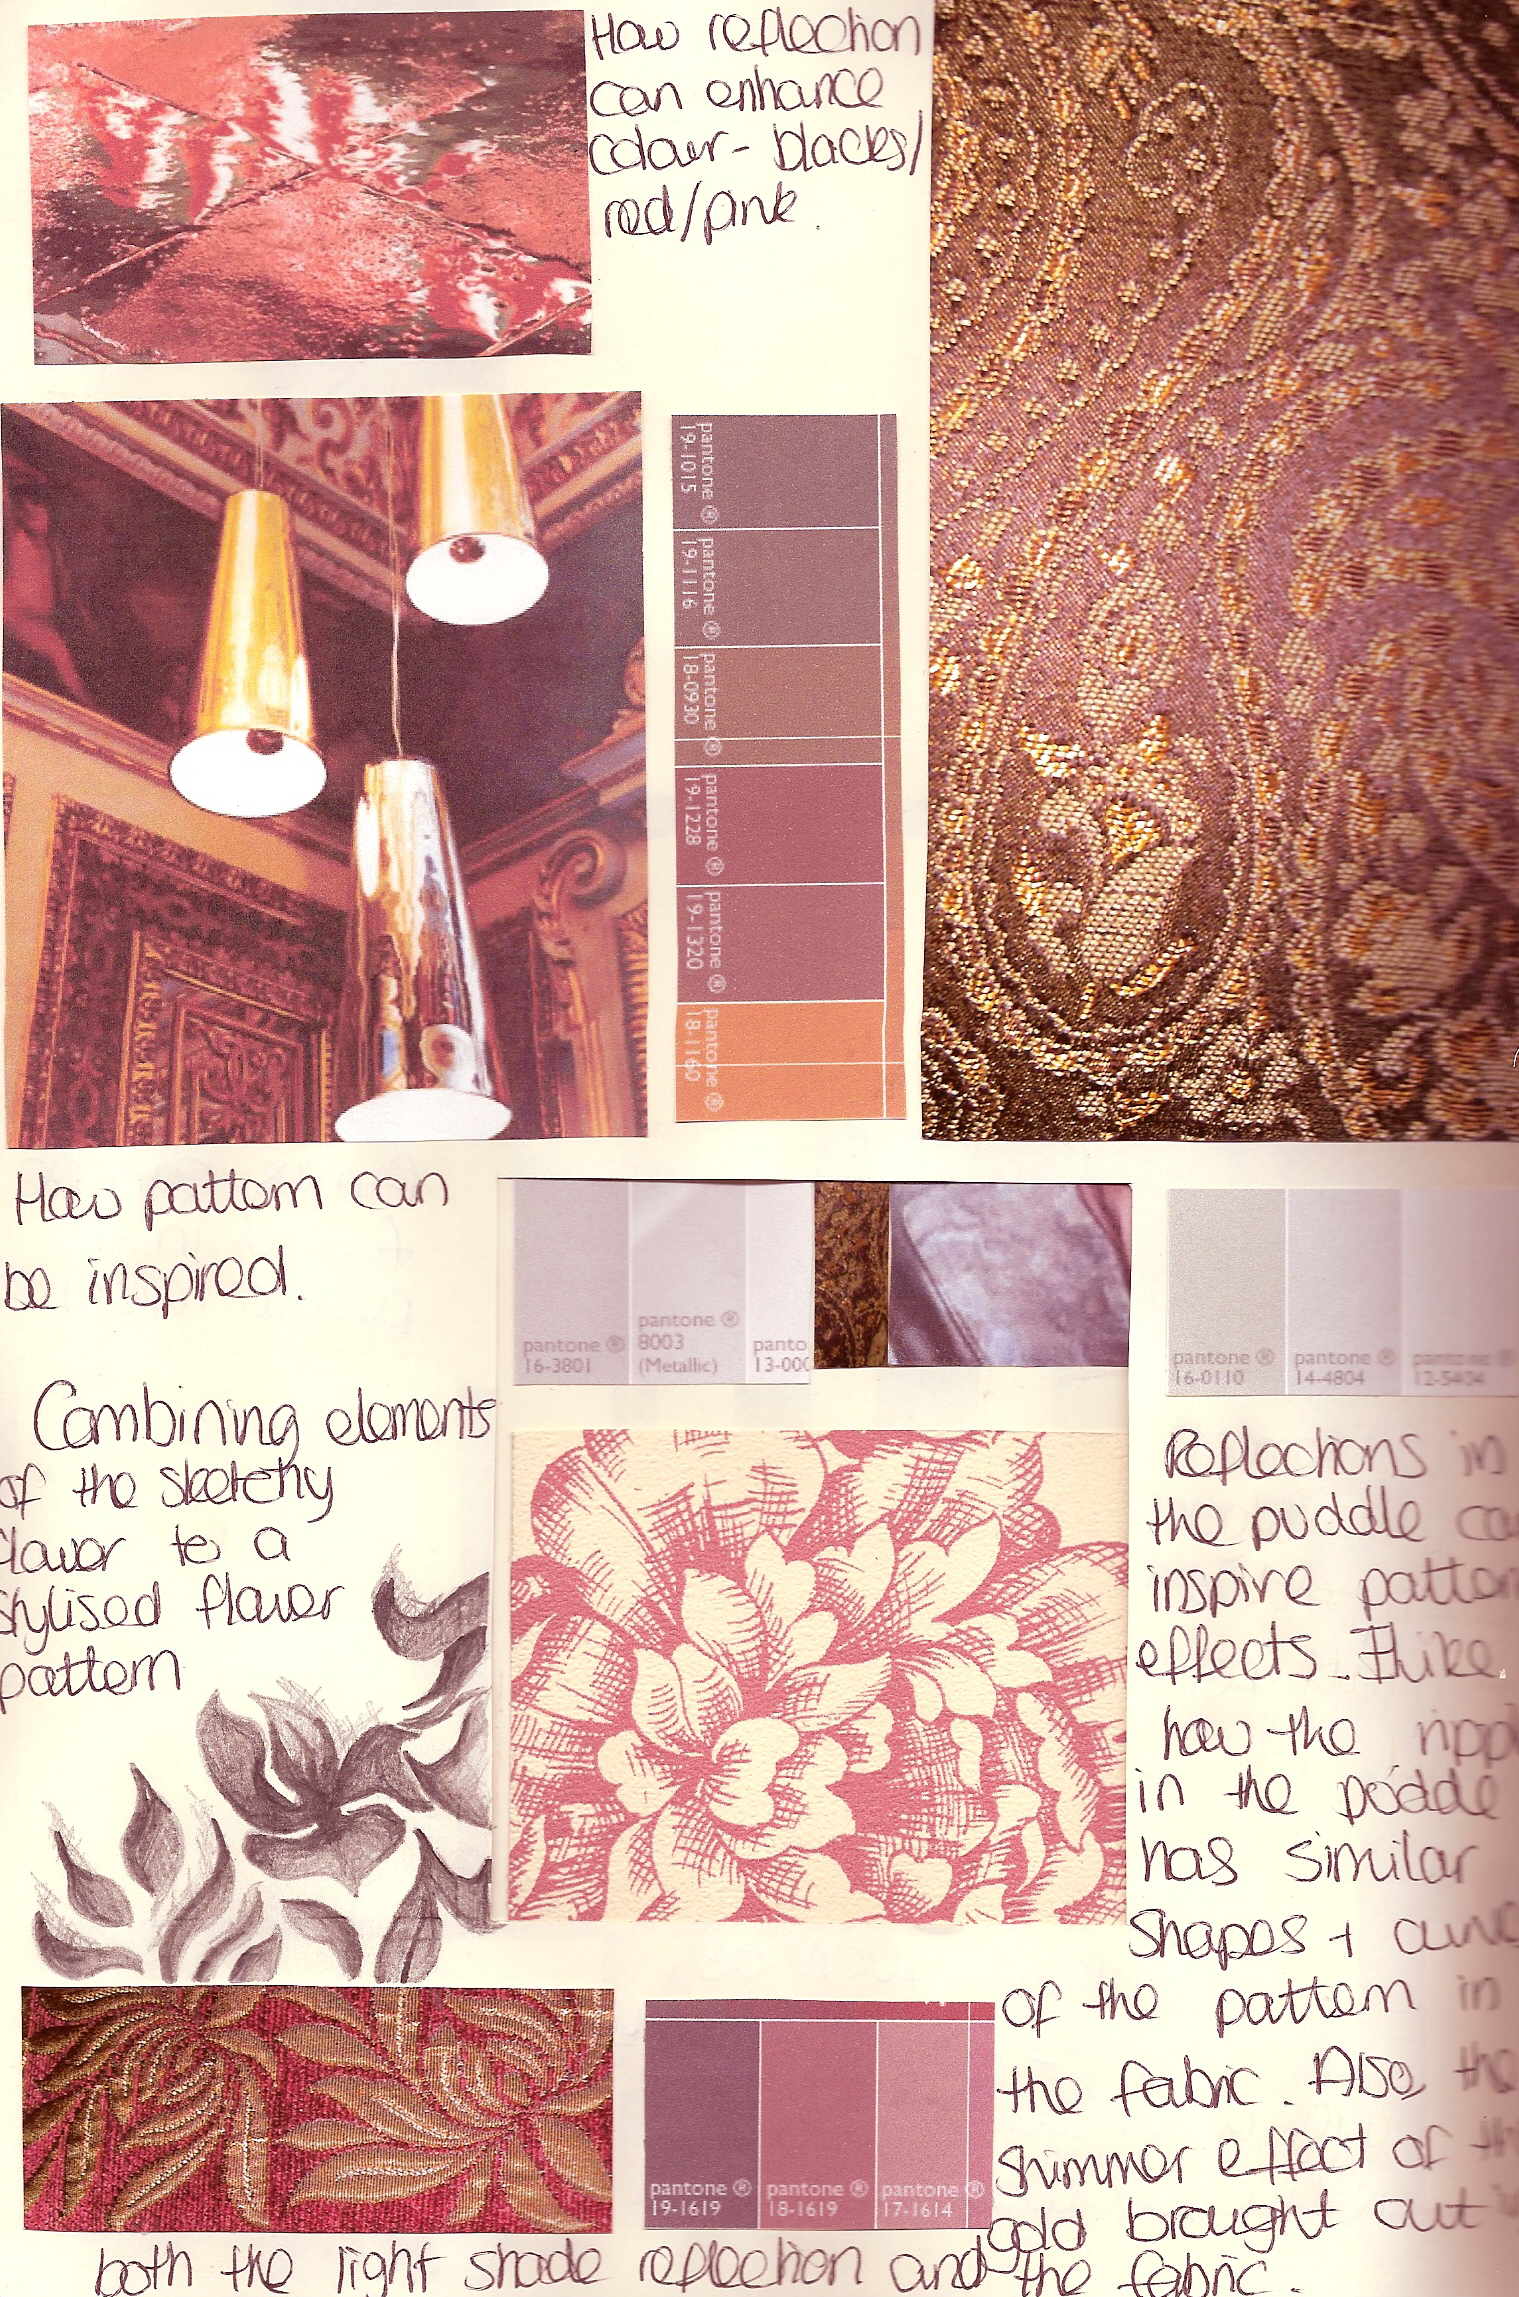 How reflection
can enhance
colour - blacks/
red/pink.
pantone ®
19-1015
pantone ®
19-1116
pantone ®
18-0930
pantone ®
19-1228
pantone ®
19-1320
pantone ®
18-1160
How pattern can
be inspired.
pantone ®
16-3801
pantone ®
8003
(Metallic)
panto
13-000
pantone ®
16-0110
pantone ®
14-4804
pantone ®
12-5404
Combining elements
of the sketchy
flower to a
stylised flower
pattern
Reflections in
the puddle
inspire
effects. I like
how the
in the puddle
has similar
shapes +
of the pattern in
the fabric. Also, the
shimmer effect of
gold brought out
both the light shade reflection and the fabric.
pantone ®
19-1619
pantone ®
18-1619
pantone ®
17-1614